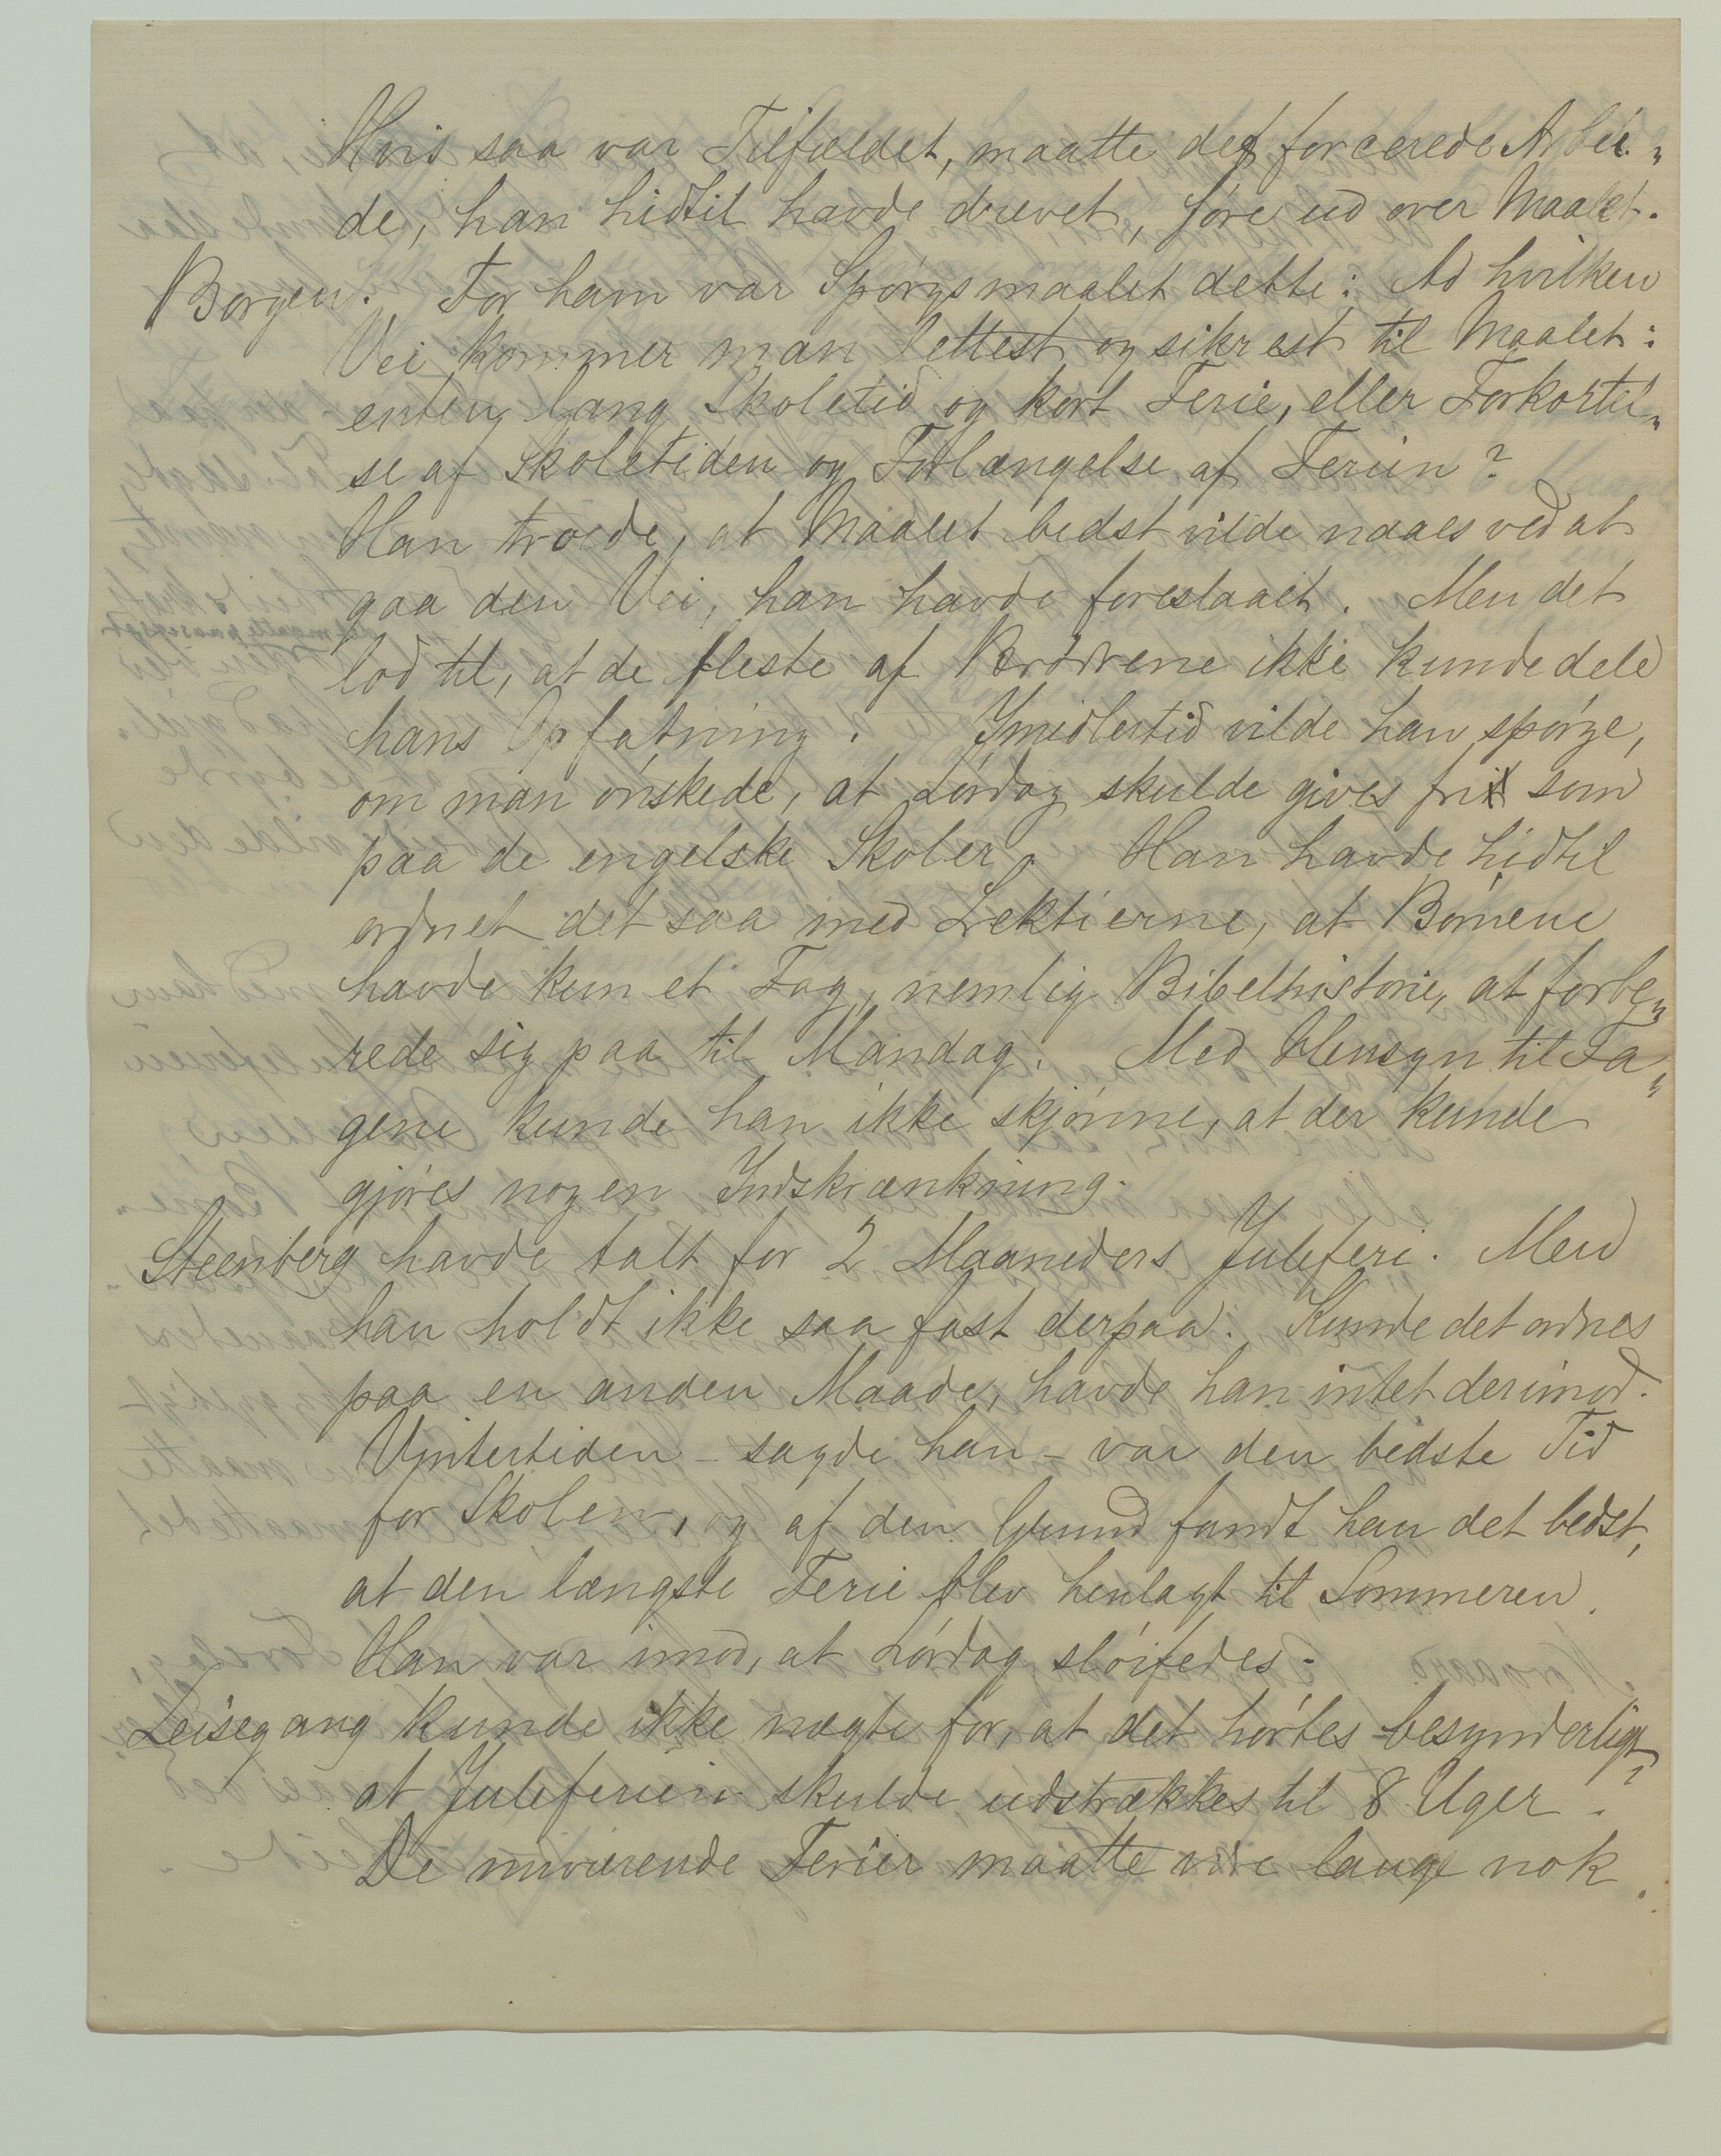 Hvis saa var Tilfældet, maatte det forcerede Arbei„
de, han hidtil havde drevet, føre ud over Maalet.
Borgen. For ham var Spørgsmaalet dette: Ad hvilken
Vei kommer man lettest og sikrest til Maalet:
enten lang Skoletid og kort Ferie, eller Forkortel„
se af Skoletiden og Forlængelse af Ferien?
Han troede, at Maalet bedst vilde naaes ved at
gaa den Vei, han havde foreslaaet. Men det
lod til, at de fleste af Brødrene ikke kunde dele
hans Opfatning. Imidlertid vilde han spørge,
om man ønskede, at Lørdag skulde gives fri som
paa de engelske Skoler. Han havde hidtil
ordnet det saa med Lektierne, at Børnene
havde kun et Fag, nemlig Bibelhistorie, at forbe„
rede sig paa til Mandag. Med Hensyn til Fa„
gene kunde han ikke skjønne, at der kunde
gjøres nogen Indskrænkning.
Steenberg havde talt for 2 Maaneders Juleferi. Men
han holdt ikke saa fast derpaa. Kunde det ordnes
paa en anden Maade, havde han intet derimod.
Vintertiden – sagde han – var den bedste Tid
for Skolen, og af den Grund fandt han det bedst,
at den længste Ferie blev henlagt til Sommeren.
Han var imod, at Lørdag sløifedes.
Leisegang kunde ikke nægte for, at det hørtes besynderligt,
at Juleferien skulde udstrækkes til 8 Uger.
De nuværende Ferier maatte være lange nok.